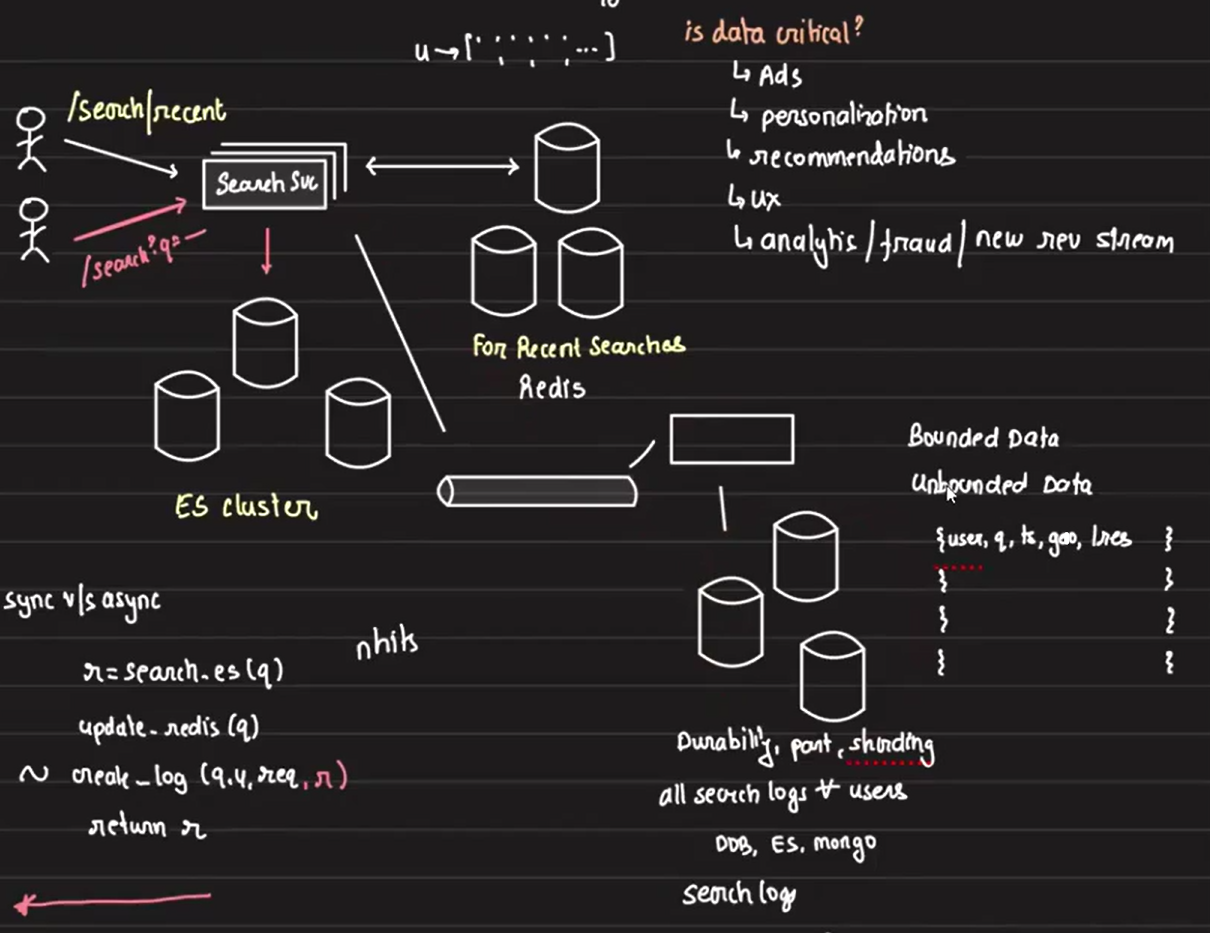 10
u→[ , , , ...]
is data critical?
↳ Ads
↳ personalization
↳ recommendations
↳ UX
↳ analytis / fraud / new rev stream
/search/recent
Search Svc
/search?q=
For Recent Searches
Redis
ES cluster
Bounded Data
Unbounded Data
{user, q, ts, geo, }
{ }
{ }
{ }
sync v/s async
nhits
r = search_es(q)
update_redis(q)
~ create_log (q, u, req, r)
return r
Durability, part, sharding
all search logs ∀ users
DDB, ES, mongo
search logs